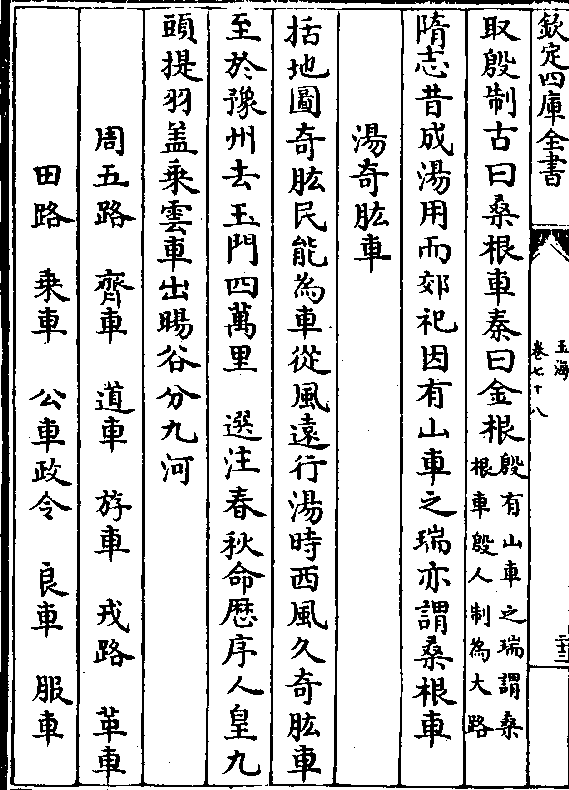 欽定四庫全書
玉海
卷七十八
二十三
取殷制古曰桑根車秦曰金根殷有山車之瑞謂桑
根車殷人制為大路
隋志昔成湯用而郊祀因有山車之瑞亦謂桑根車
湯奇肱車
括地圖奇肱民能為車從風遠行湯時西風久奇肱車
至於豫州去玉門四萬里　選注春秋命厯序人皇九
頭提羽盖乘雲車出暘谷分九河
周五路　齊車　道車　斿車　戎路　革車
田路　乘車　公車政令　良車　服車